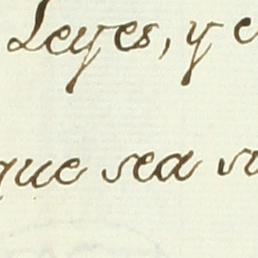 Leyes, y e
que sea su